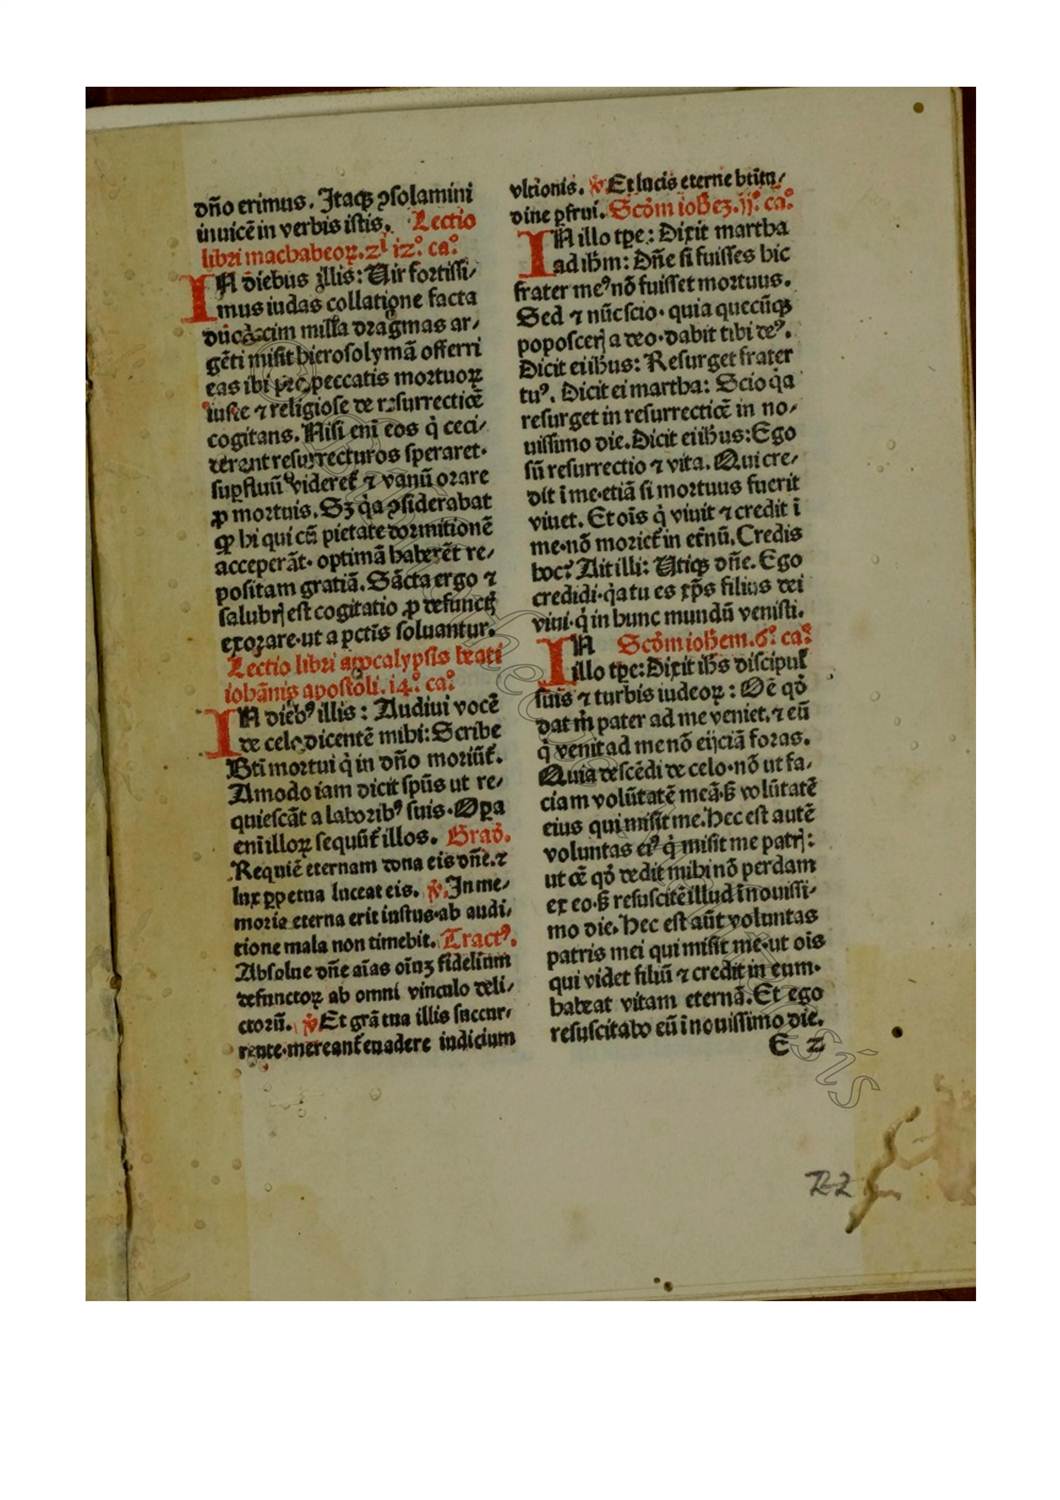 dño erimus. Itaqꝫ ꝯsolamini
inuicē in verbis istis. Lectio
libri machabeoꝝ. 2ⁱ 12°. ca°.
IN diebus illis: Uir fortissi/
mus iudas collatione facta
duodecim milia dragmas ar/
gēti misit hierosolymā offerri
eas ibi pro peccatis mortuoꝝ
iuste ⁊ religiose de resurrectiōe
cogitans. Nisi eni eos q̇ ceci/
derant resurrecturos speraret.
suꝑfluū videret̄ ⁊ vanū orare
ꝓ mortuis. Sꝫ q̇a ꝯsiderabat
ꝙ hi qui cū pietate dormitionē
acceperāt. optimā haberēt re/
positam gratiā. Sācta ergo ⁊
salubrꝭ est cogitatio ꝓ defunctꝭ
exorare. ut a pctīs soluantur.
Lectio libri apocalypsis beati
iohānis apostoli. 14°. ca°.
IN dieb⁹ illis: Audiui vocē
de celo dicentē mihi: Scribe
Bti mortui q̇ in dño moriūt̄.
Amodo iam dicit spūs ut re/
quiescāt a laborib⁹ suis. Oꝑa
enī illoꝝ sequūt̄ illos. Grad̄.
Requiē eternam dona eis dñe. ⁊
lux ꝑpetua luceat eis. ℣. In me/
moria eterna erit iustus. ab audi/
tione mala non timebit. Tract⁹.
Absolue dñe aīas oīuꝫ fidelium
defunctoꝝ ab omni vinculo deli/
ctorū. ℣ Et grā tua illis succur/
rente. mereant̄ euadere iudicium
vltionis. ℣ Et lucis eterne btītu/
dine ꝑfrui. Scd̄m iohēꝫ. 11°. ca°.
IN illo tꝑe: Dixit martha
ad ihm: Dñe si fuisses hic
frater me⁹ nō fuisset mortuus.
Sed ⁊ nūc scio. quia quecūqꝫ
poposcerꝭ a deo. dabit tibi de⁹.
Dicit ei ihūs: Resurget frater
tu⁹. Dicit ei martha: Scio q̇a
resurget in resurrectiōe in no/
uissimo die. Dicit ei ihūs: Ego
sū resurrectio ⁊ vita. Qui cre/
dit ī me. etiā si mortuus fuerit
viuet. Et oīs q̇ viuit ⁊ credit ī
me. nō moriet̄ in et̄nū. Credis
hoc? Ait illi: Utiqꝫ dñe. Ego
credidi. q̇a tu es xp̄s filius dei
viui. q̇ in hunc mundū venisti.
IN Scd̄m iohem. 6°. ca°.
illo tꝑe: Dixit ihs discipul̄
suis ⁊ turbis iudeoꝝ: Oē qd̄
dat m̄ pater ad me veniet. ⁊ eū
q̇ venit ad me nō eijciā foras.
Quia descēdi de celo. nō ut fa/
ciam volūtatē meā. s̄ volūtatē
eius qui misit me. Hec est autē
voluntas ei⁹ q̇ misit me patrꝭ:
ut oē qd̄ dedit mihi nō perdam
ex eo. s̄ resuscitē illud ī nouissi/
mo die. Hec est aūt voluntas
patris mei qui misit me. ut oīs
qui videt filiū ⁊ credit in eum.
habeat vitam eternā. Et ego
resuscitabo eū ī nouissimo die.
E 2